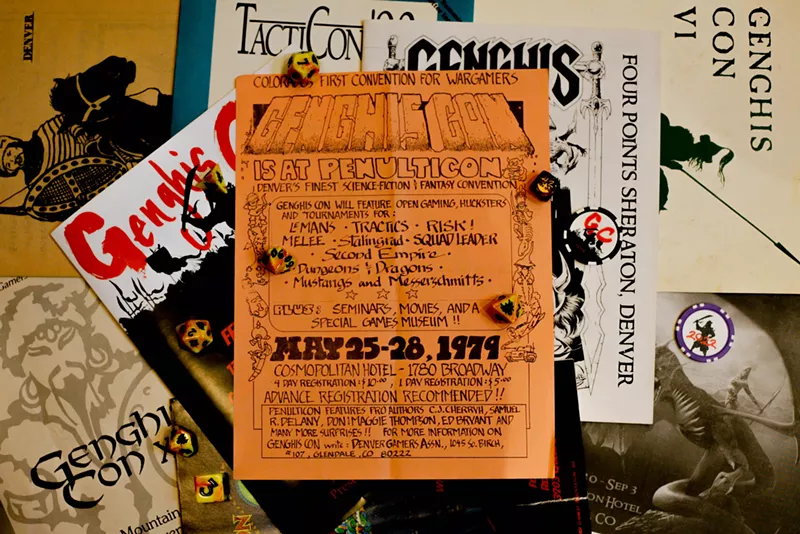 DENVER
TACTICON '92
GENGHIS
GENGHIS
CON
VI
FOUR POINTS SHERATON, DENVER
Genghis
COLORADO'S FIRST CONVENTION FOR WARGAMERS
GENGHIS CON
IS AT PENULTICON
DENVER'S FINEST SCIENCE-FICTION & FANTASY CONVENTION
GENGHIS CON WILL FEATURE OPEN GAMING, HUCKSTERS
AND TOURNAMENTS FOR:
LEMANS · TRACTICS · RISK!
MELEE · Stalingrad · SQUAD LEADER
· Second Empire ·
· Dungeons & Dragons ·
· Mustangs and Messerschmitts ·
PLUS: SEMINARS, MOVIES, AND A
SPECIAL GAMES MUSEUM!!
MAY 25-28, 1979
COSMOPOLITAN HOTEL - 1780 BROADWAY
4 DAY REGISTRATION: $10.00, 1 DAY REGISTRATION: $5.00
ADVANCE REGISTRATION RECOMMENDED!!
PENULTICON FEATURES PRO AUTHORS C.J. CHERRYH, SAMUEL
R. DELANY, DON & MAGGIE THOMPSON, ED BRYANT AND
MANY MORE SURPRISES!! FOR MORE INFORMATION ON
GENGHIS CON write: DENVER GAMERS ASSN., 1045 So. BIRCH,
#107, GLENDALE, CO 80222
GC
Genghi
Con X
Mountain
- SEP 3
ON HOTEL
, CO
5